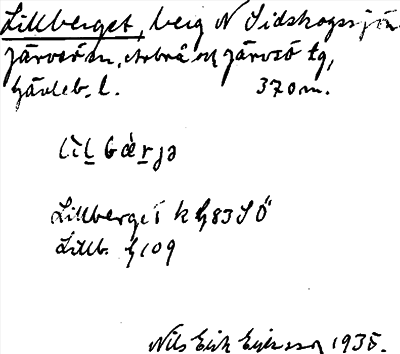 Lillberget, berg N Sidskogssjön
Järvsö sn, Arbrå och Järvsö tg,
Gävleb. l. 370 m.
lìl bær̀jə
Lillberget k G83SÖ
Lillb. G109
Nils Erik Eriksson 1935.